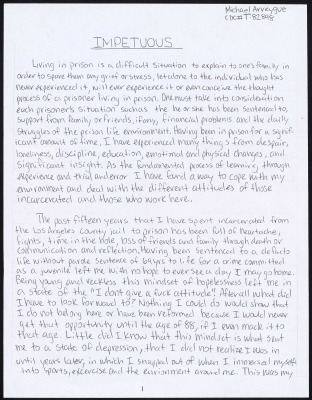 Michael Arreygue
CDC# T-82898
IMPETUOUS
Living in prison is a difficult situation to explain to one's family in
order to spare them any grief or stress, let alone to the individual who has
never experienced it, will ever experience it or even conceive the thought
process of a prisoner living in prison. One must take into consideration
each prisoner's situation such as the he or she has been sentenced to,
support from family or friends, if any, financial problems and the daily
struggles of the prison life environment. Having been in prison for a signif-
icant amount of time, I have experienced many things from despair,
loneliness, discipline, education, emotional and physical changes, and
significant insight. As the fundamental process of learning through
experience and trial and error I have found a way to cope with my
environment and deal with the different attitudes of those
incarcerated and those who work here.
The past fifteen years that I have spent incarcerated from
the Los Angeles County jail to prison has been full of heartache,
fights, time in the hole, loss of friends and family through death or
communication and reflection. Having been sentenced to a de facto
life without parole sentence of 69 yrs to life for a crime committed
as a juvenile left me with no hope to ever see a day I may go home.
Being young and reckless this mindset of hopelessness left me in
a state of the "I don't give a fuck attitude". After all what did
I have to look forward to? Nothing I could do would show that
I do not belong here or have been reformed because I would never
get that opportunity until the age of 88, if I even made it to
that age. Little did I know that this mindset is what sent
me to a state of depression, that I did not realize I was in
until years later, in which I snapped out of when I immersed myself
into sports, exercise and the environment around me. This was my
1